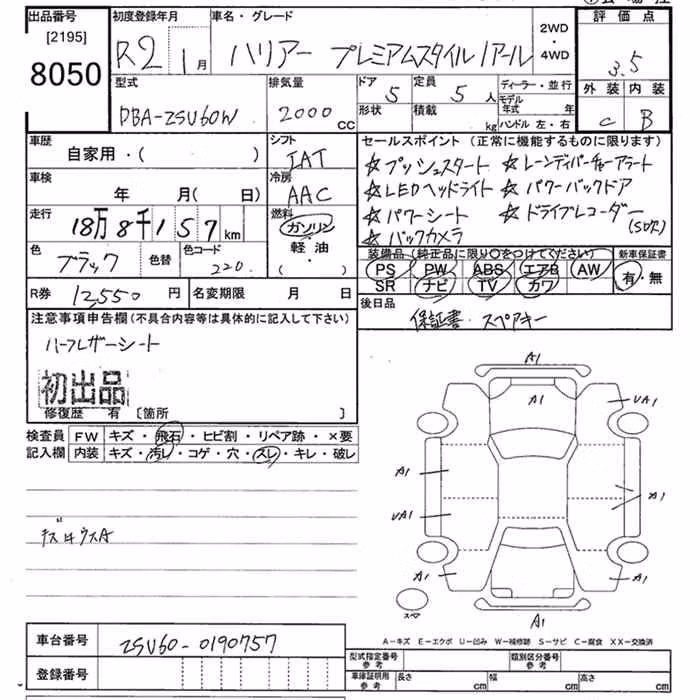 出品番号
[2195]
8050
初度登録年月
R2 1月
車名・グレード
ハリアー プレミアムスタイルノアール
2WD
・
4WD
評価点
3.5
外装 内装
C B
型式
DBA-ZSU60W
排気量
2000 CC
ドア
5
定員
5 人
形状
積載
kg
ディーラー・並行
モデル年式 年
ハンドル 左・右
車歴
自家用・( )
シフト
IAT
車検
年 月( 日)
冷房
AAC
走行
18万8千157km
燃料
ガソリン
軽・油
・( )
色
ブラック
色替
色コード
220
R券
12,550 円
名変期限 月 日
セールスポイント (正常に機能するものに限ります)
☆プッシュスタート ☆レーンディパーチャーアラート
☆LEDヘッドライト ☆パワーバックドア
☆パワーシート ☆ドライブレコーダー
☆バックカメラ
装備品 (純正品に限り○をつけてください)
PS PW ABS エアB AW
SR ナビ TV カワ
新車保証書
有・無
後日品
保証書・スペアキー
注意事項申告欄(不具合内容等は具体的に記入して下さい)
ハーフレザーシート
初出品
修復歴 有 [箇所 ]
検査員 FW キズ・飛石・ヒビ割・リペア跡・×要
記入欄 内装 キズ・汚レ・コゲ・穴・スレ・キレ・破レ
A1
A1
UA1
A1
A1
UA1
A1
A1
A1
スペア
車台番号
ZSU60-0190757
登録番号
A−キズ E−エクボ U−凹み W−補修跡 S−サビ C−腐食 XX−交換済
型式指定番号
参考
類別区分番号
参考
車庫証明用
参考
長さ cm 幅 cm 高さ cm